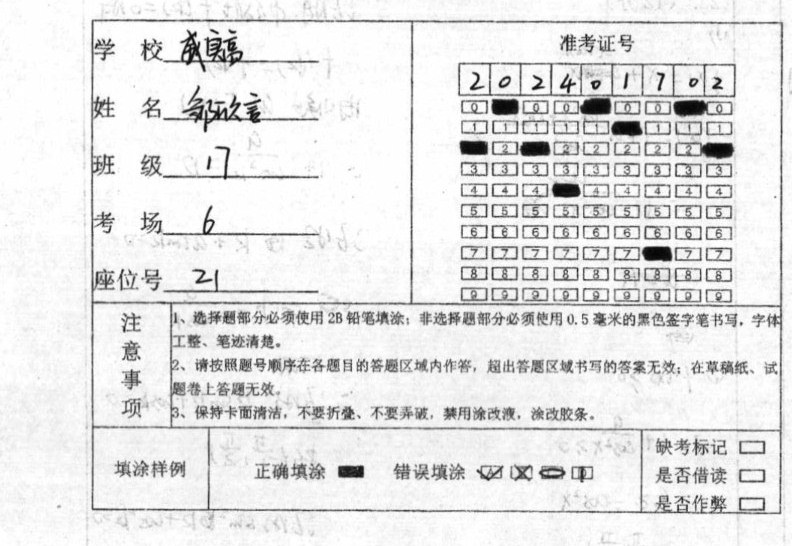 准考证号
学 校 咸宜高
2 0 2 4 0 1 7 0 2
姓 名 邹欣言
0 0 0 0 0 0
1 1 1 1 1 1 1 1
班 级 17
2 2 2 2 2 2
3 3 3 3 3 3 3 3 3
4 4 4 4 4 4 4 4
考 场 6
5 5 5 5 5 5 5 5 5
6 6 6 6 6 6 6 6 6
7 7 7 7 7 7 7 7
座位号 21
8 8 8 8 8 8 8 8 8
9 9 9 9 9 9 9 9 9
注意事项
1、选择题部分必须使用2B铅笔填涂；非选择题部分必须使用0.5毫米的黑色签字笔书写，字体
工整、笔迹清楚。
2、请按照题号顺序在各题目的答题区域内作答，超出答题区域书写的答案无效；在草稿纸、试
题卷上答题无效。
3、保持卡面清洁，不要折叠、不要弄破，禁用涂改液，涂改胶条。
填涂样例 正确填涂 错误填涂
缺考标记
是否借读
是否作弊